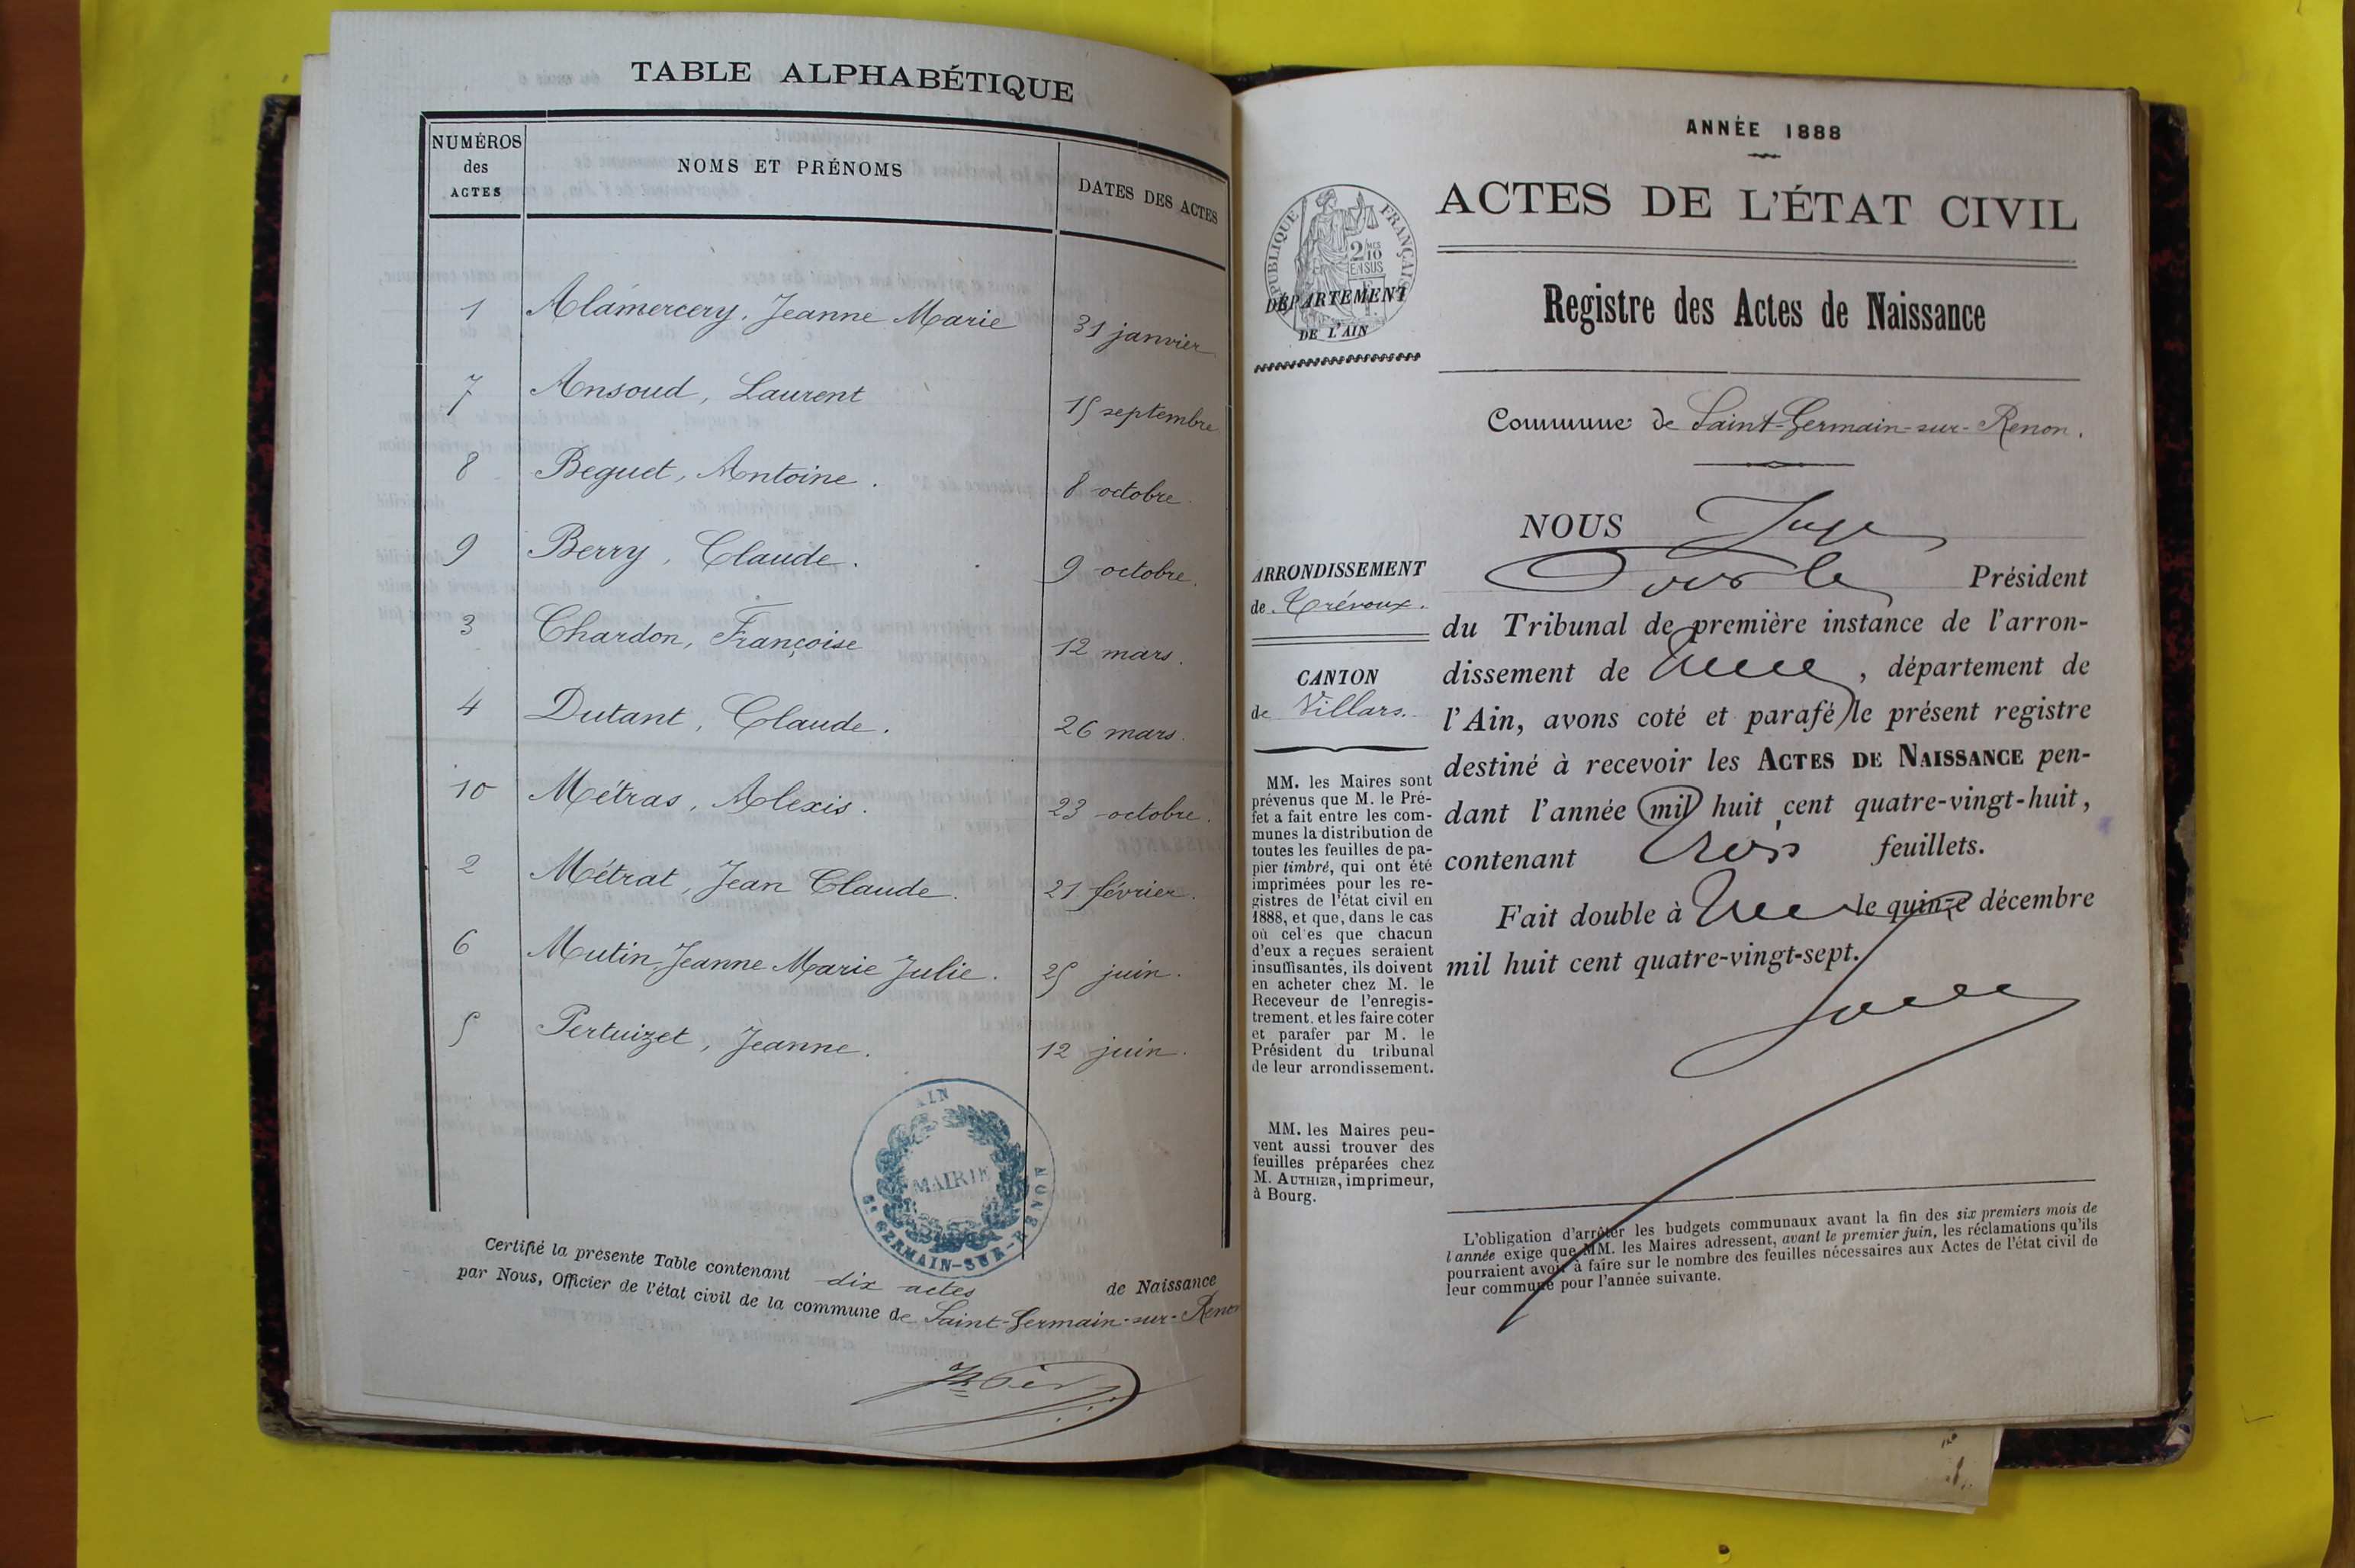 TABLE ALPHABÉTIQUE
NUMÉROS des ACTES
NOMS ET PRÉNOMS
DATES DES ACTES
1 Alamercery, Jeanne Marie 31 janvier
7 Ansoud, Laurent 15 septembre
8 Beguet, Antoine. 8 octobre.
9 Berry, Claude. 9 octobre.
3 Chardon, Françoise 12 mars.
4 Dutant, Claude. 26 mars.
10 Métras, Alexis. 23 octobre.
2 Métrat, Jean Claude. 21 février.
6 Mutin, Jeanne Marie Julie. 25 juin.
5 Pertuizet, Jeanne. 12 juin.
AIN
MAIRIE
St GERMAIN-SUR-RENON
Certifié la présente Table contenant dix actes de Naissance
par Nous, Officier de l'état civil de la commune de Saint-Germain-sur-Renon
ANNÉE 1888
ACTES DE L'ÉTAT CIVIL
RÉPUBLIQUE FRANÇAISE
2/10
EN SUS
DÉPARTEMENT
DE L'AIN
Registre des Actes de Naissance
Commune de Saint-Germain-sur-Renon.
ARRONDISSEMENT
de Trévoux.
CANTON
de Villars.
MM. les Maires sont
prévenus que M. le Pré-
fet a fait entre les com-
munes la distribution de
toutes les feuilles de pa-
pier timbré, qui ont été
imprimées pour les re-
gistres de l'état civil en
1888, et que, dans le cas
où celles que chacun
d'eux a reçues seraient
insuffisantes, ils doivent
en acheter chez M. le
Receveur de l'enregis-
trement, et les faire coter
et parafer par M. le
Président du tribunal
de leur arrondissement.
MM. les Maires peu-
vent aussi trouver des
feuilles préparées chez
M. AUTHIER, imprimeur,
à Bourg.
NOUS Juge
pour le Président
du Tribunal de première instance de l'arron-
dissement de , département de
l'Ain, avons coté et parafé le présent registre
destiné à recevoir les ACTES DE NAISSANCE pen-
dant l'année mil huit cent quatre-vingt-huit,
contenant trois feuillets.
Fait double à le quinze décembre
mil huit cent quatre-vingt-sept.
L'obligation d'arrêter les budgets communaux avant la fin des six premiers mois de
l'année exige que MM. les Maires adressent, avant le premier juin, les réclamations qu'ils
pourraient avoir à faire sur le nombre des feuilles nécessaires aux Actes de l'état civil de
leur commune pour l'année suivante.